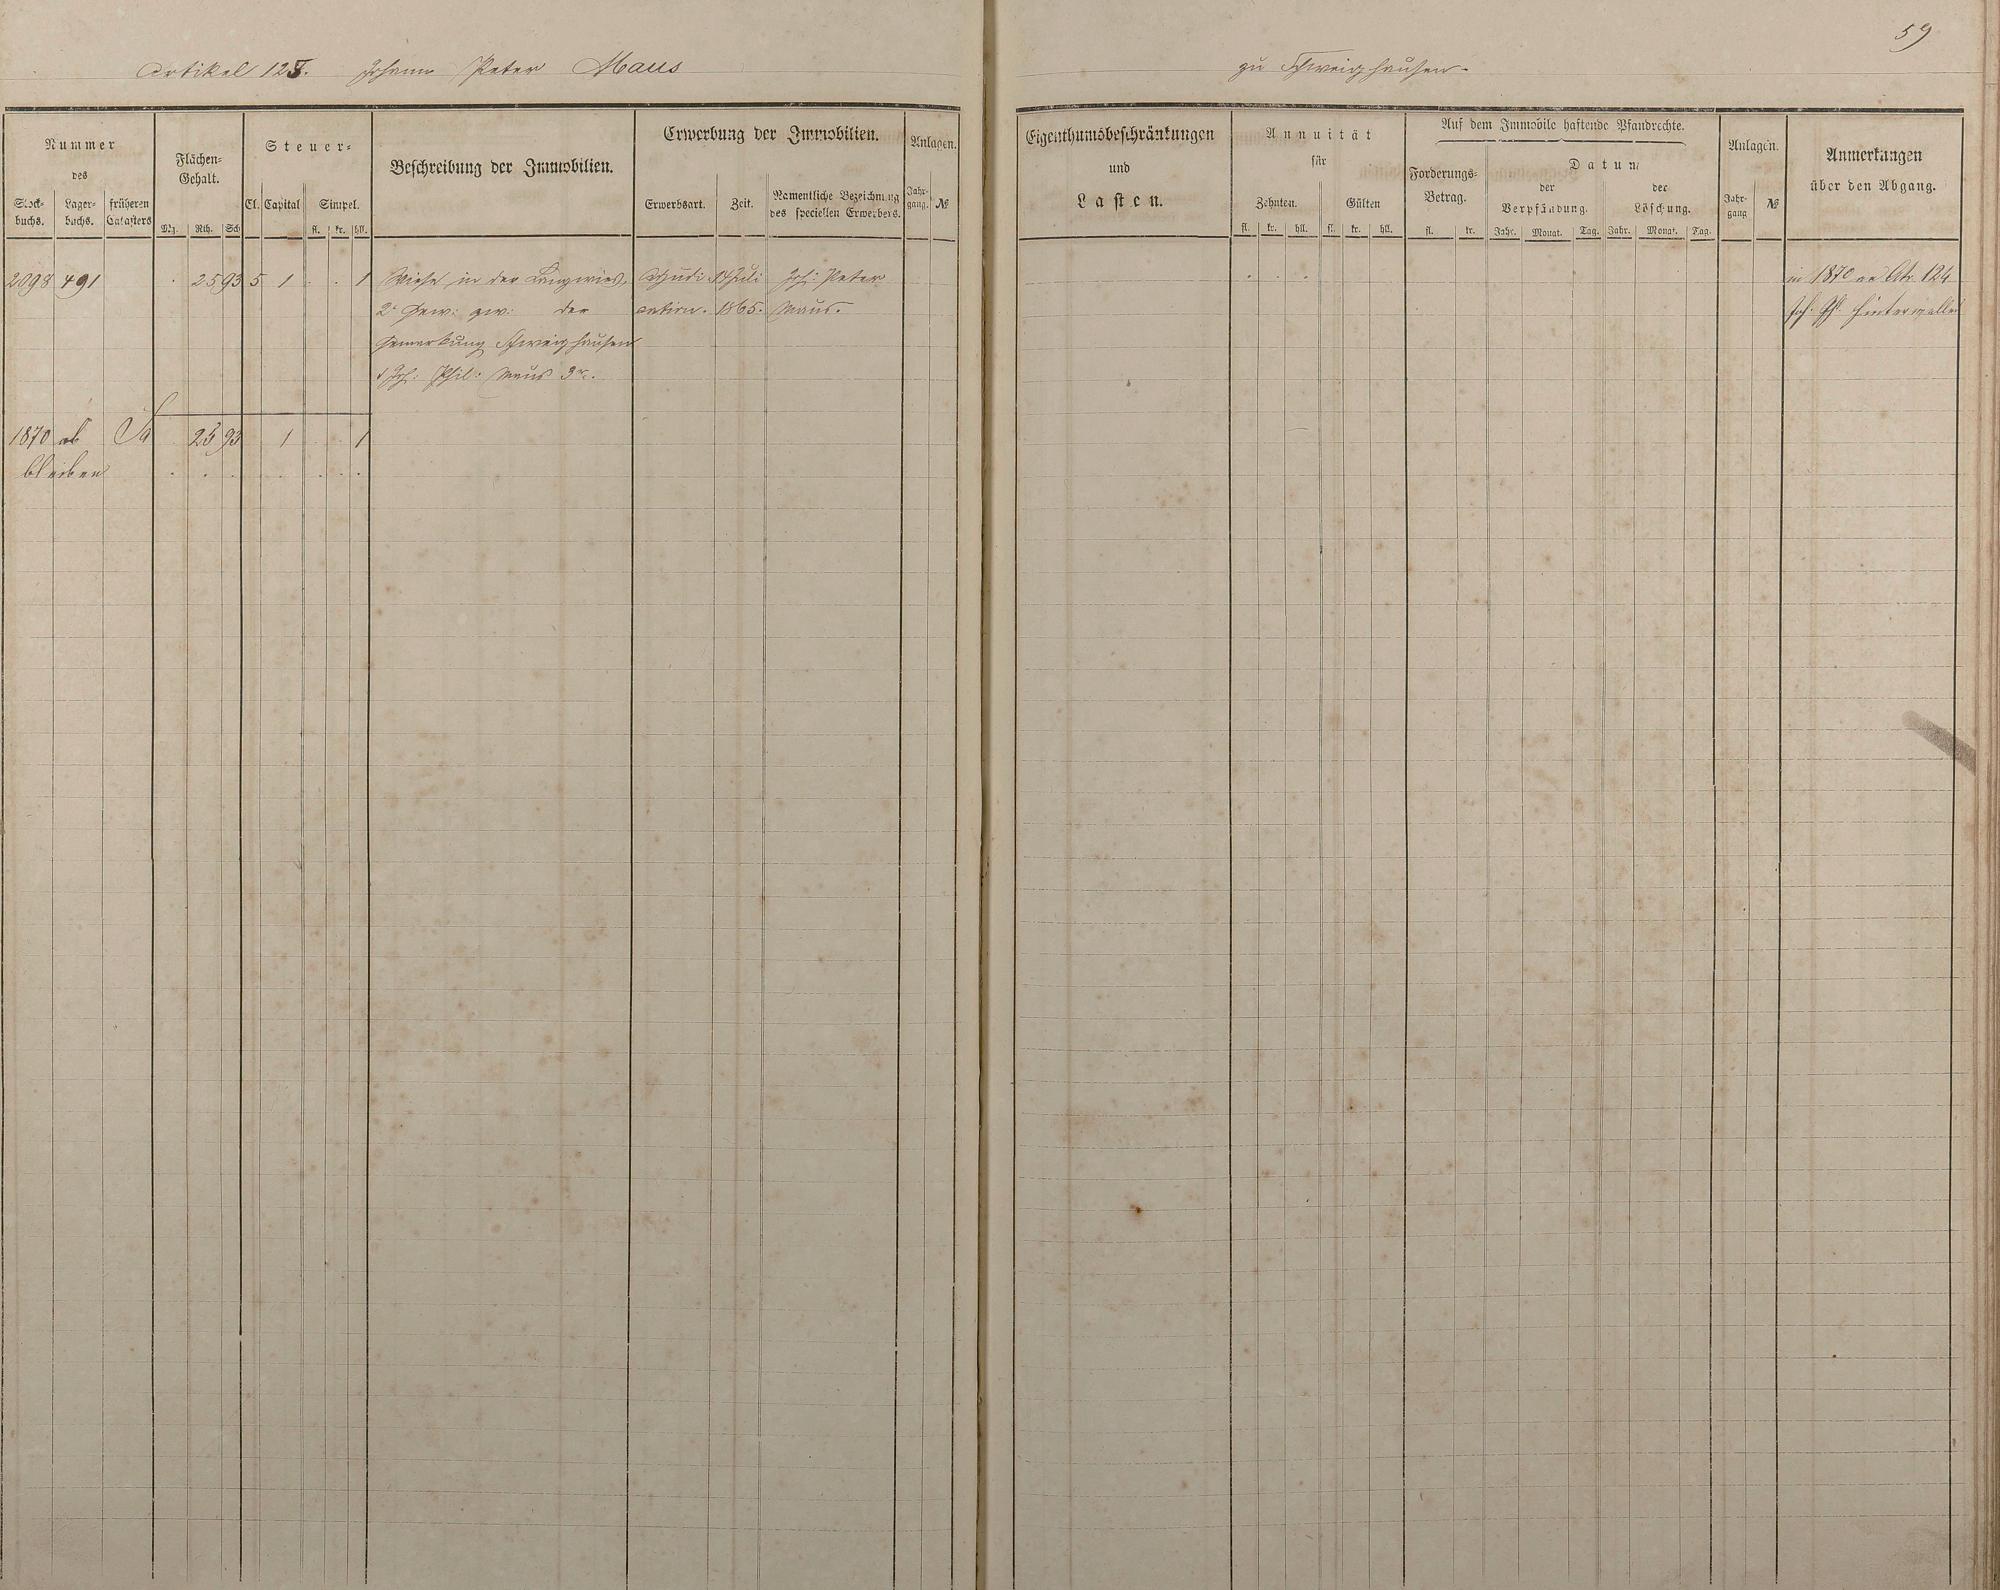 59
Artikel 125. Johann Peter Maus zu Schweighausen.
Nummer
des
Stock-
buchs.
Lager-
buchs.
früheren
Catasters
Flächen-
Gehalt.
Mg. Rth. Sch
Steuer-
Cl. Capital Simpel.
fl. kr. hll.
Beschreibung der Immobilien.
Erwerbung der Immobilien.
Erwerbsart. Zeit.
Namentliche Bezeichnung
des speciellen Erwerbers.
Anlagen.
Jahr-
gang. №
Eigenthumsbeschränkungen
und
Lasten.
Annuität
für
Zehnten. Gülten
fl. kr. hll. fl. kr. hll.
Auf dem Immobile haftende Pfandrechte.
Forderungs-
Betrag.
fl. kr.
Datum
der
Verpfändung.
Jahr. Monat. Tag.
der
Löschung.
Jahr. Monat. Tag.
Anlagen.
Jahr-
gang №
Anmerkungen
über den Abgang.
2098 491 25 93 5 1 1 Wiese in der Langwies, Adjudi 14 Juli Joh: Peter
2r Gew: zw: der cation. 1865. Maus.
Gemarkung Schweighausen
& Joh: Phil: Maus 3r.
in 1870 an Atr. 124
1870 ab Sa 25 93 1 1
bleiben